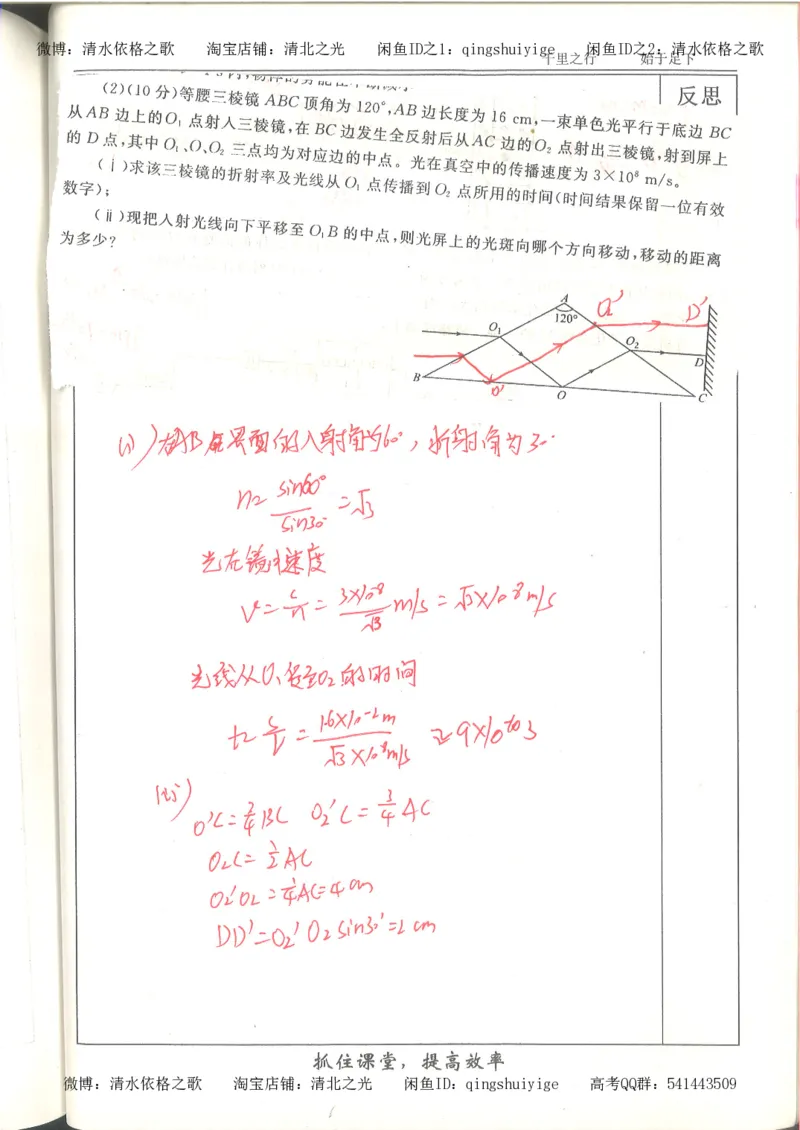 微博：清水依格之歌 淘宝店铺：清北之光 闲鱼ID之1：qingshuiyige 闲鱼ID之2：清水依格之歌
千里之行 始于足下
反思
(2)(10分)等腰三棱镜 ABC 顶角为 120°,AB 边长度为 16 cm,一束单色光平行于底边 BC
从 AB 边上的O₁ 点射入三棱镜,在 BC 边发生全反射后从 AC 边的O₂ 点射出三棱镜,射到屏上
的 D 点,其中 O₁、O、O₂ 三点均为对应边的中点。光在真空中的传播速度为 3×10⁸ m/s。
(ⅰ)求该三棱镜的折射率及光线从 O₁ 点传播到 O₂ 点所用的时间(时间结果保留一位有效
数字);
(ⅱ)现把入射光线向下平移至 O₁B 的中点,则光屏上的光斑向哪个方向移动,移动的距离
为多少?
A
120°
O₁
O₂
D
B
O
C
O₂'
D'
O'
(i)在AB 界面的入射角为60°，折射角为30°
n=sin60°/sin30°=√3
光在镜中速度
v=c/n=3×10⁸/√3 m/s=√3×10⁸m/s
光线从O₁传至O₂的时间
t= =1.6×10⁻¹m/√3×10⁸m/s≈9×10⁻¹⁰s
(ii)
O'C=3/4BC O₂'C=3/4AC
O₂C=1/2AC
O₂'O₂=1/4AC=4cm
DD'=O₂'O₂sin30°=2cm
抓住课堂，提高效率
微博：清水依格之歌 淘宝店铺：清北之光 闲鱼ID：qingshuiyige 高考QQ群：541443509